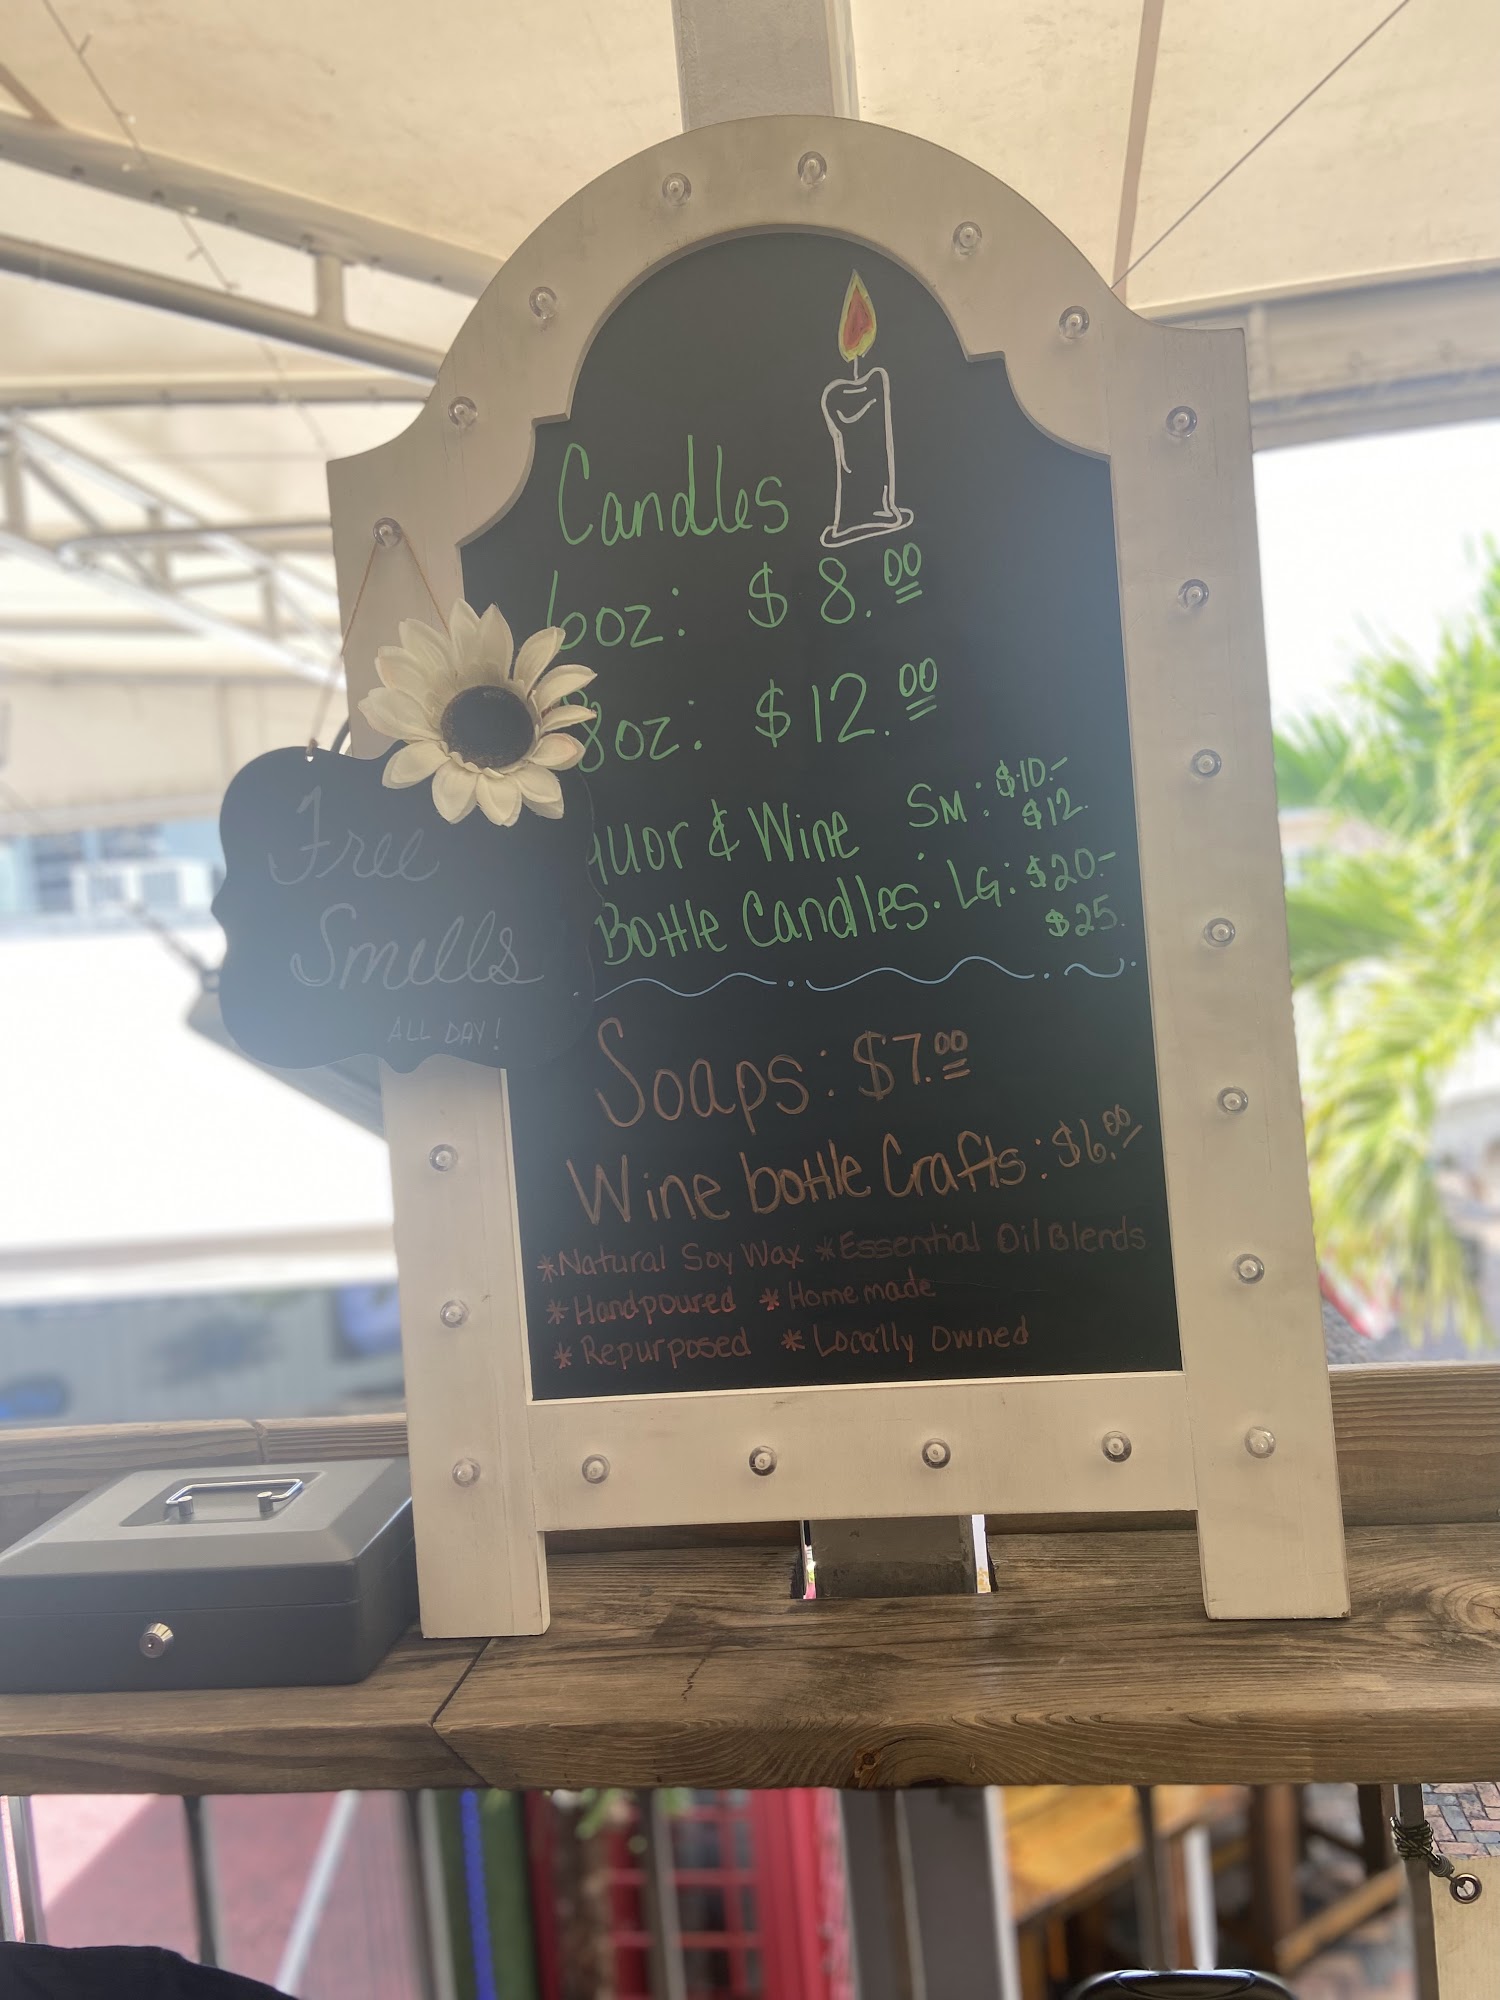 Candles
6oz: $8.00
8oz: $12.00
quor & Wine SM: $10.-
$12.
Bottle Candles: LG: $20.-
$25.
Free
Smells
ALL DAY!
Soaps: $7.00
Wine bottle Crafts: $6.00
*Natural Soy Wax *Essential Oil Blends
*Handpoured *Homemade
*Repurposed *Locally Owned